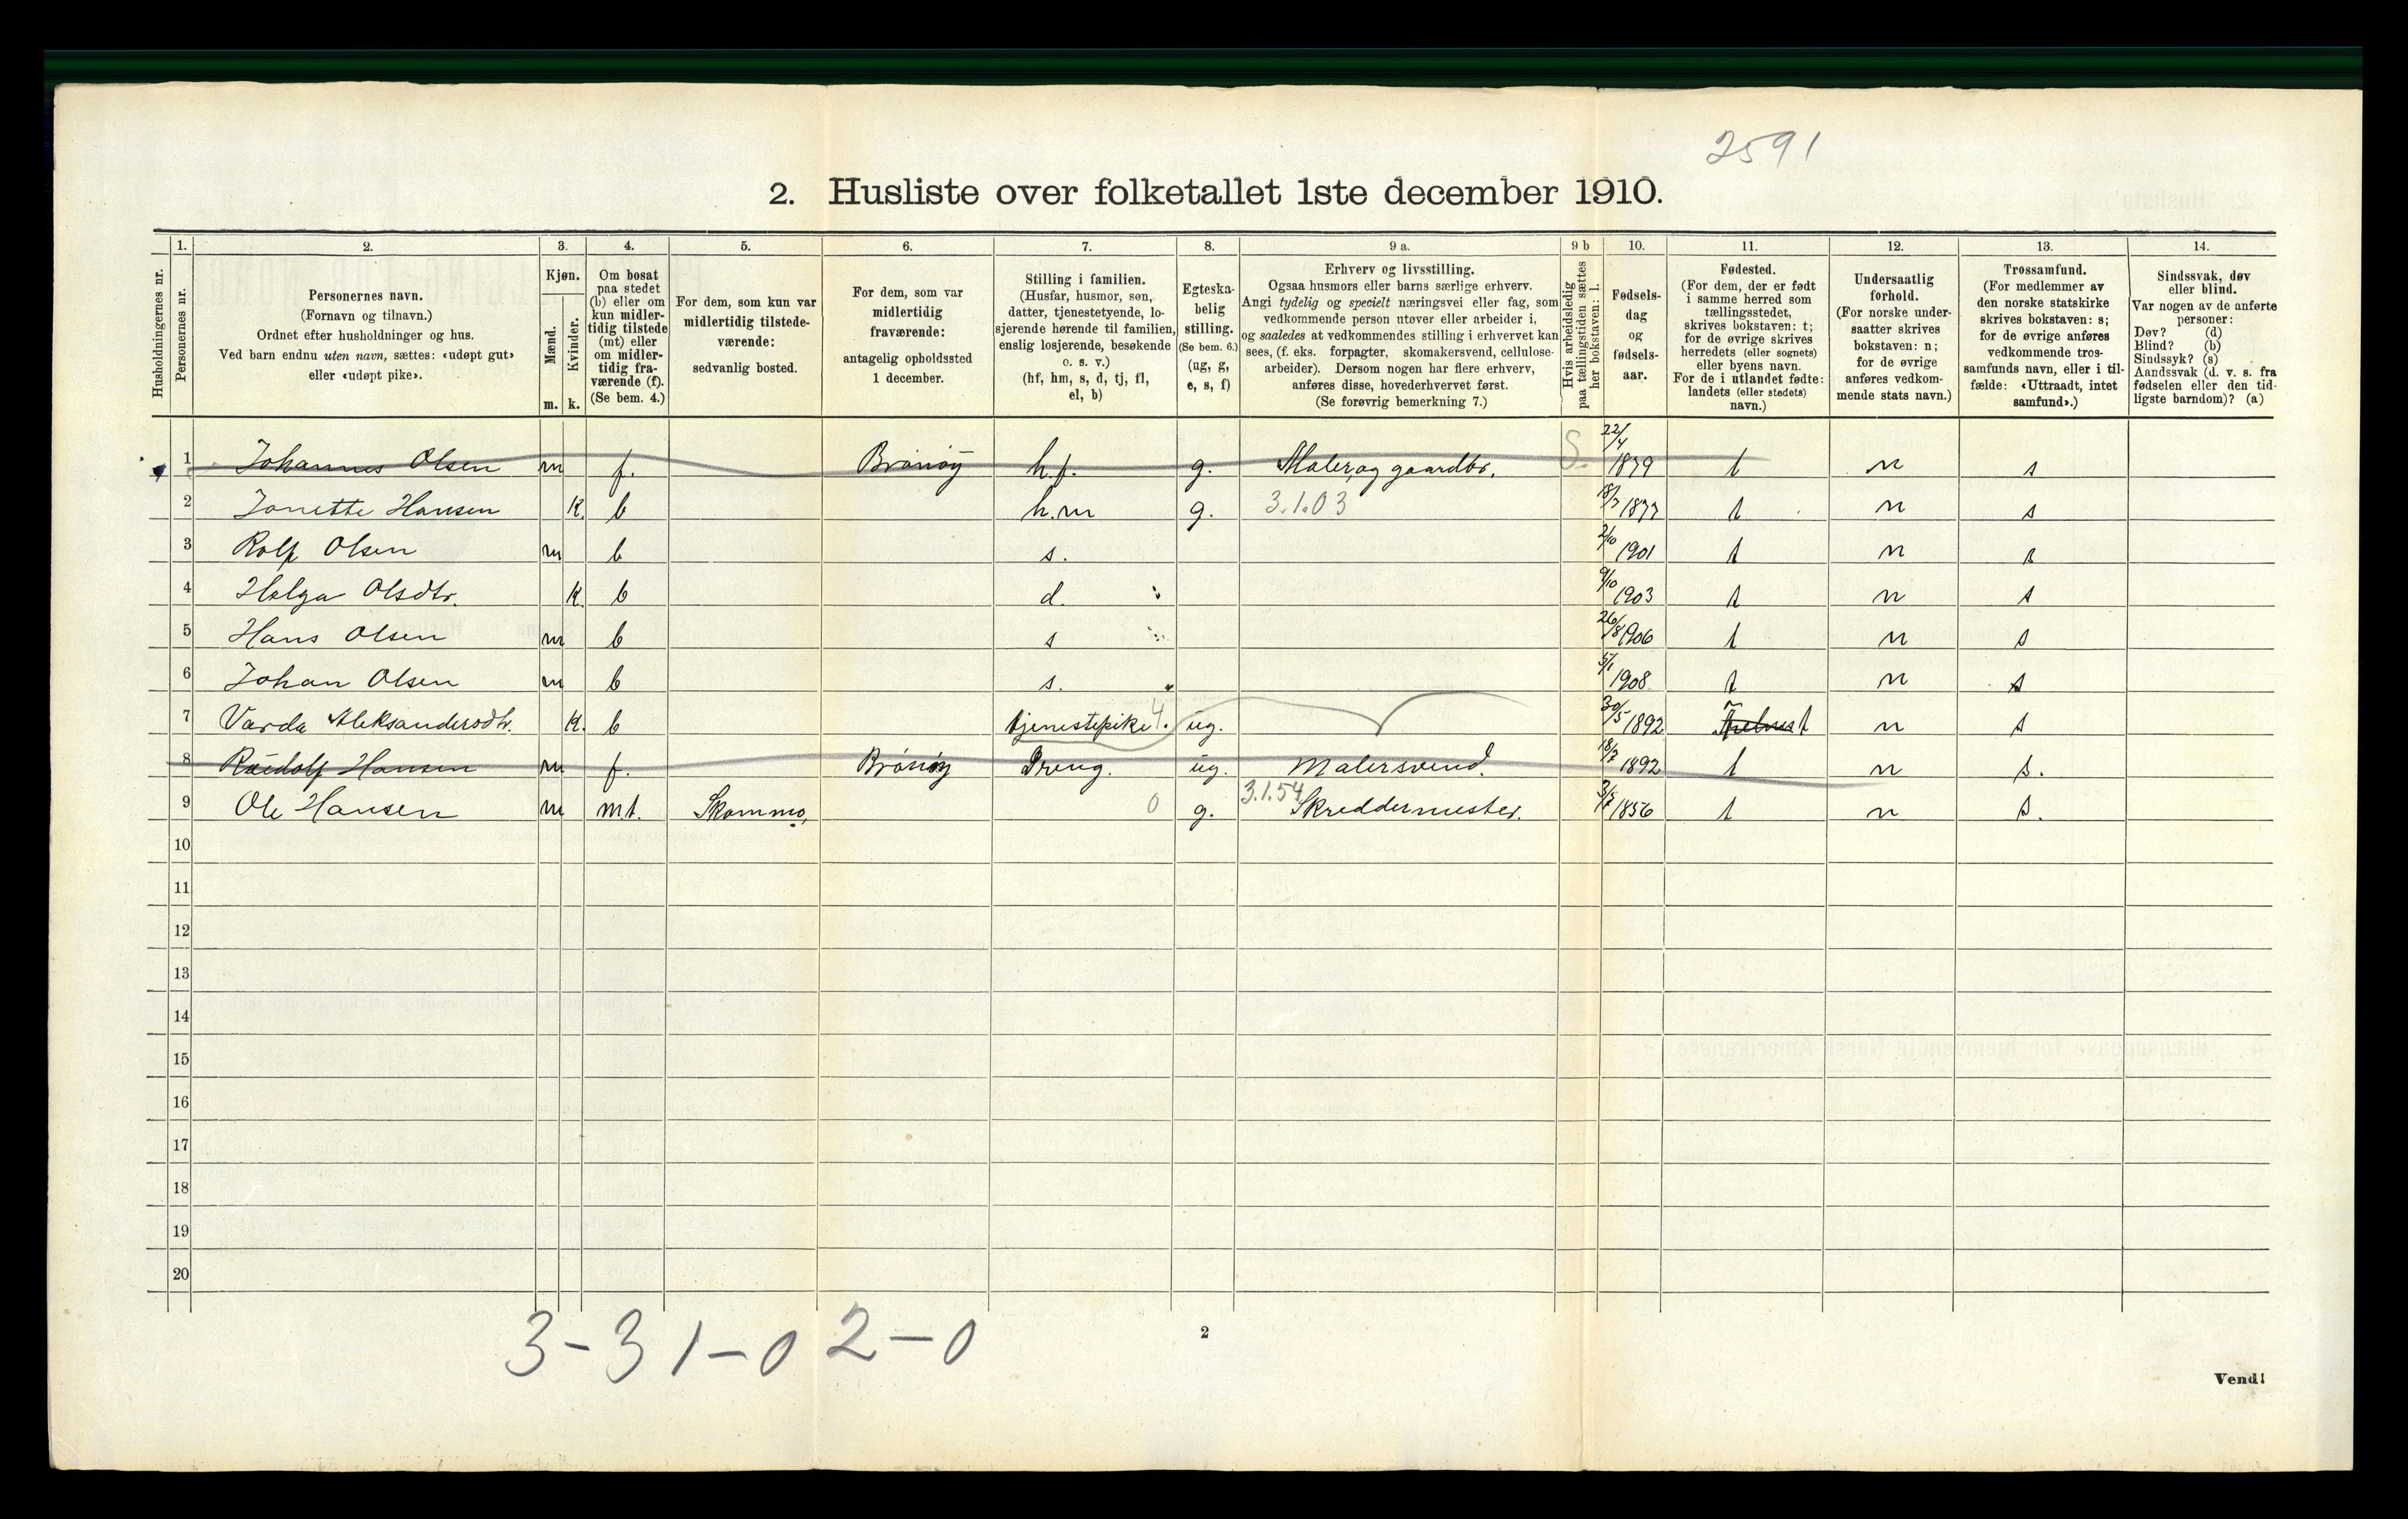 2591
2. Husliste over folketallet 1ste december 1910.
1. 2. 3. 4. 5. 6. 7. 8. 9 a. 9 b 10. 11. 12. 13. 14.
Husholdningernes nr.
Personernes nr.
Personernes navn.
(Fornavn og tilnavn.)
Ordnet efter husholdninger og hus.
Ved barn endnu uten navn, sættes: «udøpt gut»
eller «udøpt pike».
Kjøn.
Mænd.
Kvinder.
m. k.
Om bosat
paa stedet
(b) eller om
kun midler-
tidig tilstede
(mt) eller
om midler-
tidig fra-
værende (f).
(Se bem. 4.)
For dem, som kun var
midlertidig tilstede-
værende:
sedvanlig bosted.
For dem, som var
midlertidig
fraværende:
antagelig opholdssted
1 december.
Stilling i familien.
(Husfar, husmor, søn,
datter, tjenestetyende, lo-
sjerende hørende til familien,
enslig losjerende, besøkende
o. s. v.)
(hf, hm, s, d, tj, fl,
el, b)
Egteska-
belig
stilling.
(Se bem. 6.)
(ug, g,
e, s, f)
Erhverv og livsstilling.
Ogsaa husmors eller barns særlige erhverv.
Angi tydelig og specielt næringsvei eller fag, som
vedkommende person utøver eller arbeider i,
og saaledes at vedkommendes stilling i erhvervet kan
sees, (f. eks. forpagter, skomakersvend, cellulose-
arbeider). Dersom nogen har flere erhverv,
anføres disse, hovederhvervet først.
(Se forøvrig bemerkning 7.)
Hvis arbeidsledig
paa tællingstiden sættes
her bokstaven: l.
Fødsels-
dag
og
fødsels-
aar.
Fødested.
(For dem, der er født
i samme herred som
tællingsstedet,
skrives bokstaven: t;
for de øvrige skrives
herredets (eller sognets)
eller byens navn.
For de i utlandet fødte:
landets (eller stedets)
navn.)
Undersaatlig
forhold.
(For norske under-
saatter skrives
bokstaven: n;
for de øvrige
anføres vedkom-
mende stats navn.)
Trossamfund.
(For medlemmer av
den norske statskirke
skrives bokstaven: s;
for de øvrige anføres
vedkommende tros-
samfunds navn, eller i til-
fælde: «Uttraadt, intet
samfund».)
Sindssvak, døv
eller blind.
Var nogen av de anførte
personer:
Døv? (d)
Blind? (b)
Sindssyk? (s)
Aandssvak (d. v. s. fra
fødselen eller den tid-
ligste barndom)? (a)
1 Johannes Olsen m f. Brønøy h.f. g. Maler og gaardbr. S. 22/4 1879 t n s
2 Jonette Hansen K. b h.m g. 3.1.03 18/7 1877 t n s
3 Rolf Olsen m b s. 2/10 1901 t n s
4 Helga Olsdtr. K. b d. 9/10 1903 t n s
5 Hans Olsen m b s 26/8 1906 t n s
6 Johan Olsen m b s. 5/1 1908 t n s
7 Varda Aleksandersdtr. K. b tjenestepike 4. ug. 30/5 1892 t n s
8 Ruedolf Hansen m f. Brønøy Dreng. ug. Malersvend. 18/7 1892 t n s.
9 Ole Hansen m m.t. Skommo, 0 g. 3.1.54 Skreddermester. 1856 t n s.
10
11
12
13
14
15
16
17
18
19
20
3-3 1-0 2-0
2
Vend!